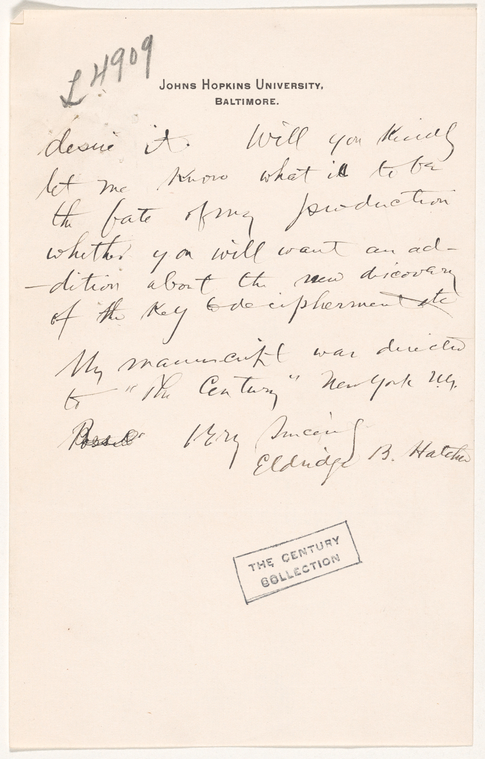 L4909
JOHNS HOPKINS UNIVERSITY,
BALTIMORE.
desire it. Will you kindly
let me know what is to be
the fate of my production
whether you will want an ad-
-dition about the new discovery
of the key to decipherment etc
My manuscript was directed
to "The Century" New York N.Y.
Very Sincerely
Eldridge B. Hatcher
THE CENTURY
COLLECTION